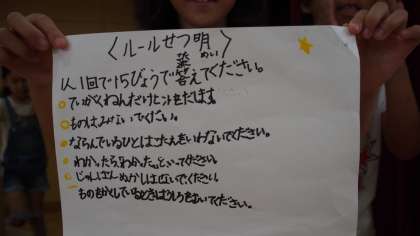 〈ルールせつ明〉
1人1回で15びょうで答えてください。
ていがくねんだけヒントをだします。
ものはみないでください。
ならんでいるひとはこたえをいわないでください。
わかったら、わかったといってください。
じゅんばんぬかしはしないでください。
ものをかくしているときはうしろをむいてください。